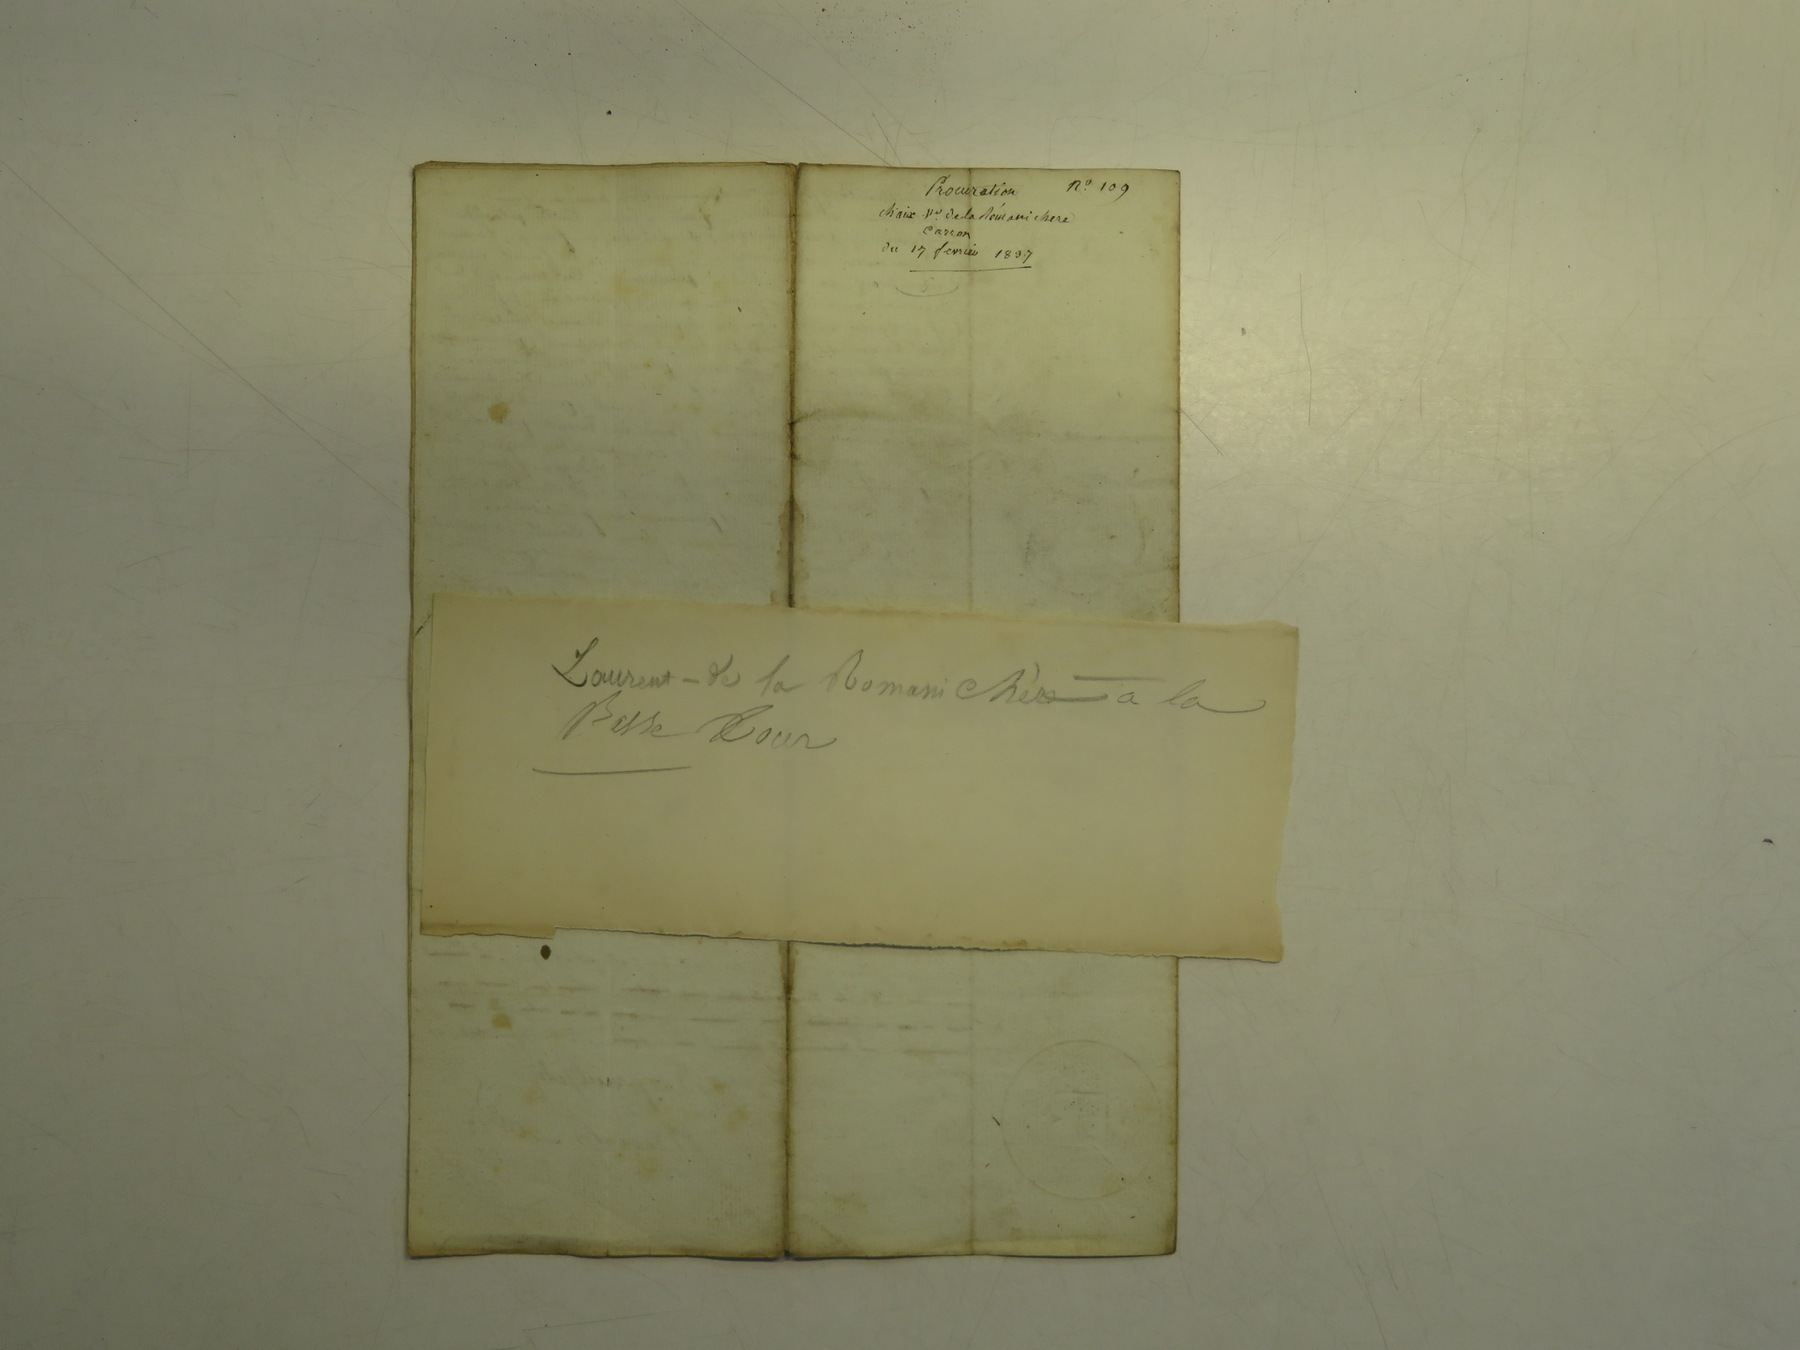 Procuration N° 109
chaix Ve de la Rémanichere
Carron
du 17 fevrier 1837
Laurent - de la Romanichère - à la
Basse Cour